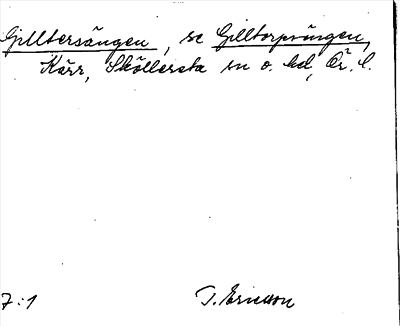 Gilltersängen, se Gilltorpsängen,
Kärr, Sköllersta sn o. hd, Ör. l.
7:1 T. Ericsson